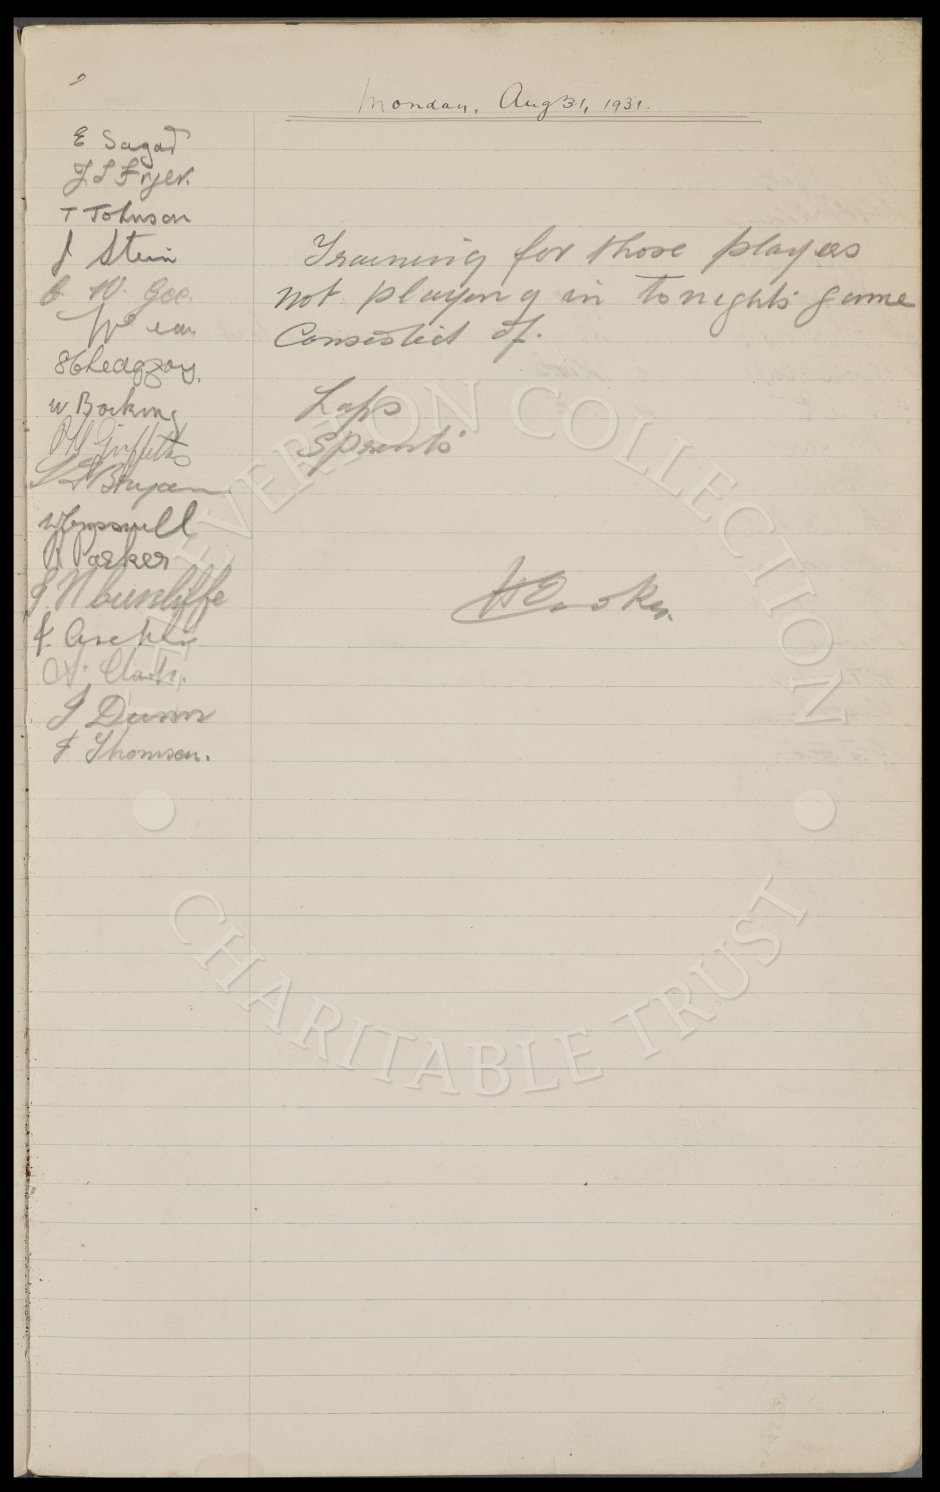 Monday. Aug 31, 1931.
E Sagar
J S Fryer.
T Johnson
J Stein
C. W. Gee.
W Bocking
P H Griffiths
W Cresswell
R Parker
J N Cunliffe
J. Archer
A. Clark.
J Dunn
J Thomson.
Training for those players
not playing in tonights game
Consisted of.
Laps
Sprints
H Cooke
THE EVERTON COLLECTION
CHARITABLE TRUST